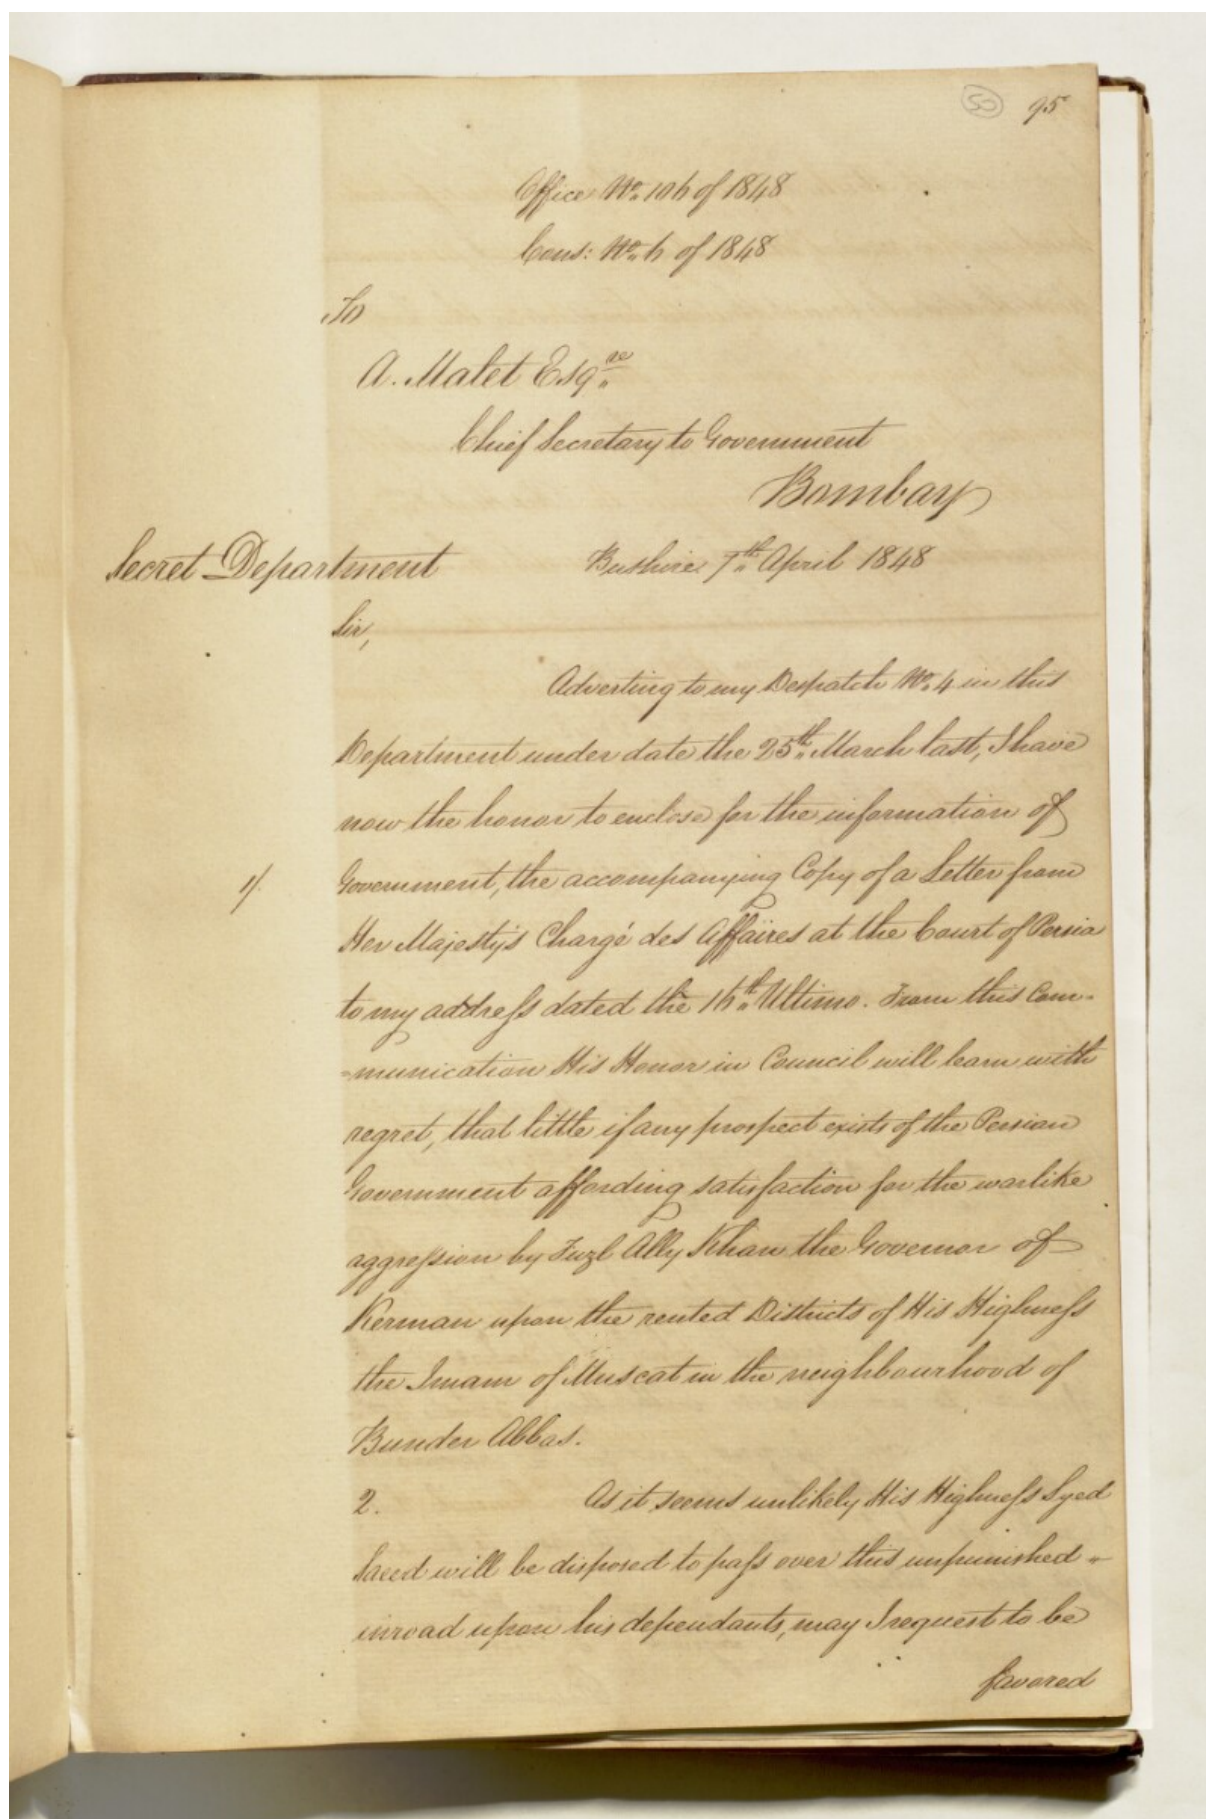 50 95
Office No. 106 of 1848
Cons: No. 6 of 1848
To
A. Malet Esqre
Chief Secretary to Government
Bombay
Secret Department Bushire 7th April 1848
Sir,
Adverting to my Despatch No. 4 in this
Department under date the 25th March last, I have
now the honor to enclose for the information of
1/. Government, the accompanying Copy of a Letter from
Her Majesty's Chargé des Affäires at the Court of Persia
to my address dated the 16th Ultimo. From this Com-
-munication His Honor in Council will learn with
regret, that little if any prospect exists of the Persian
Government affording satisfaction for the warlike
aggression by Fuzl Ally Khan the Governor of
Kerman upon the rented Districts of His Highness
the Imam of Muscat in the neighbourhood of
Bunder Abbas.
2. As it seems unlikely His Highness Syed
Saeed will be disposed to pass over this unpunished
inroad upon his dependants, may I request to be
favored